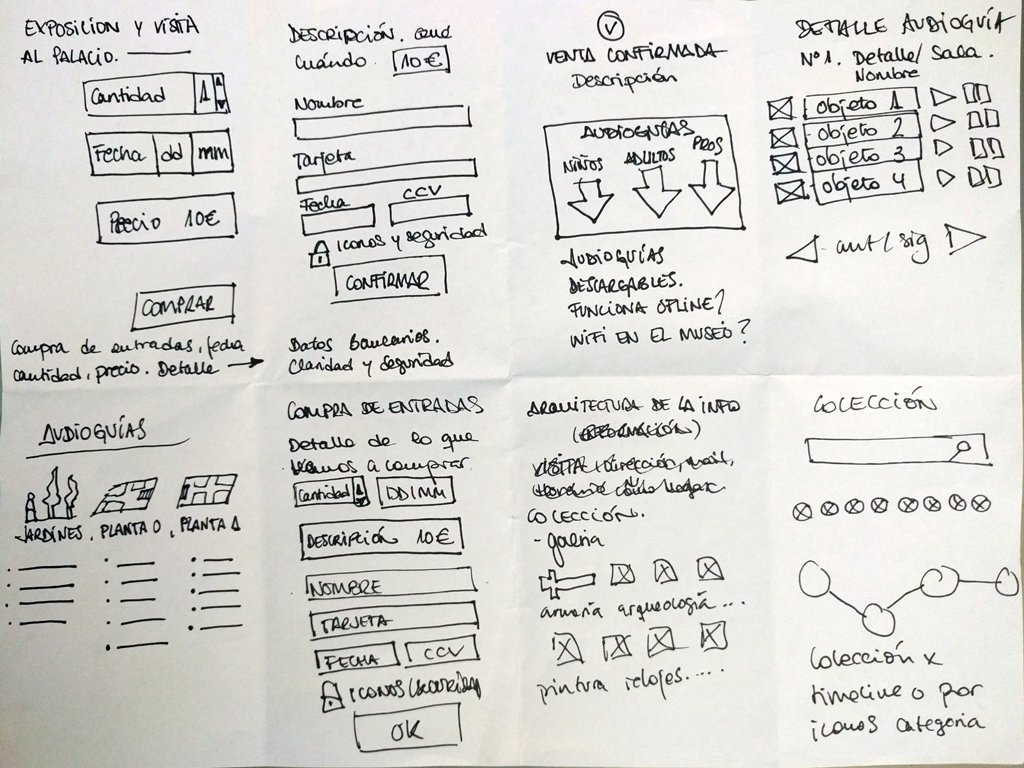 EXPOSICION Y VISITA
AL PALACIO.
Cantidad 1
Fecha dd mm
Precio 10€
COMPRAR
Compra de entradas, fecha
cantidad, precio. Detalle
DESCRIPCIÓN. que
cuándo. 10€
Nombre
Tarjeta
Fecha CCV
iconos y seguridad
CONFIRMAR
Datos bancarios.
Claridad y seguridad
V
VENTA CONFIRMADA
Descripción
AUDIOGUIAS
NIÑOS ADULTOS PROS
AUDIOGUÍAS
DESCARGABLES.
FUNCIONA OFLINE?
WIFI EN EL MUSEO?
DETALLE AUDIOGUÍA
Nº1. Detalle/ Sala.
Nombre
objeto 1
objeto 2
objeto 3
objeto 4
- ant / sig
AUDIOGUÍAS
JARDÍNES. PLANTA 0, PLANTA 1
COMPRA DE ENTRADAS
Detalle de lo que
vamos a comprar.
Cantidad DD/MM
DESCRIPCIÓN 10€
NOMBRE
TARJETA
FECHA CCV
ICONOS/SEGURIDAD
OK
ARQUITECTURA DE LA INFO
VISITA + dirección, mail,
COLECCIÓN.
- galería
armería arqueología...
pintura relojes....
COLECCIÓN
Colección x
timeline o por
iconos categoria